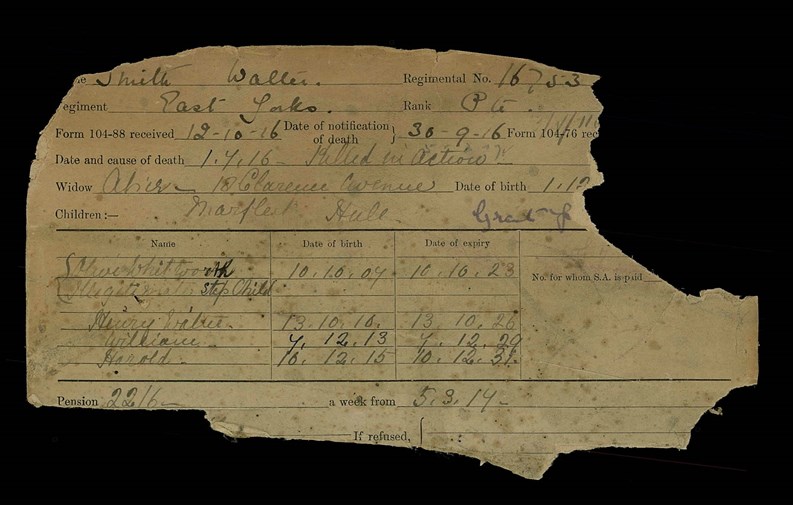 e Smith Walter. Regimental No. 16753
egiment East Yorks. Rank Pte.
Form 104-88 received 12-10-16 Date of notification of death } 30-9-16 Form 104-76 rec
Date and cause of death 1.7.16 - Killed in Action
Widow 18 Clarence Avenue Date of birth 1.12
Children :— Marfleet Hull
Name Date of birth Date of expiry
Whitworth 10.10.07 10.10.23 No. for whom S.A. is paid
step Child
Henry 13.10.10. 13.10.26
William 7.12.13 7.12.29
Harold 10.12.15 10.12.31.
Pension 22/6 a week from 5.3.17-
If refused, {